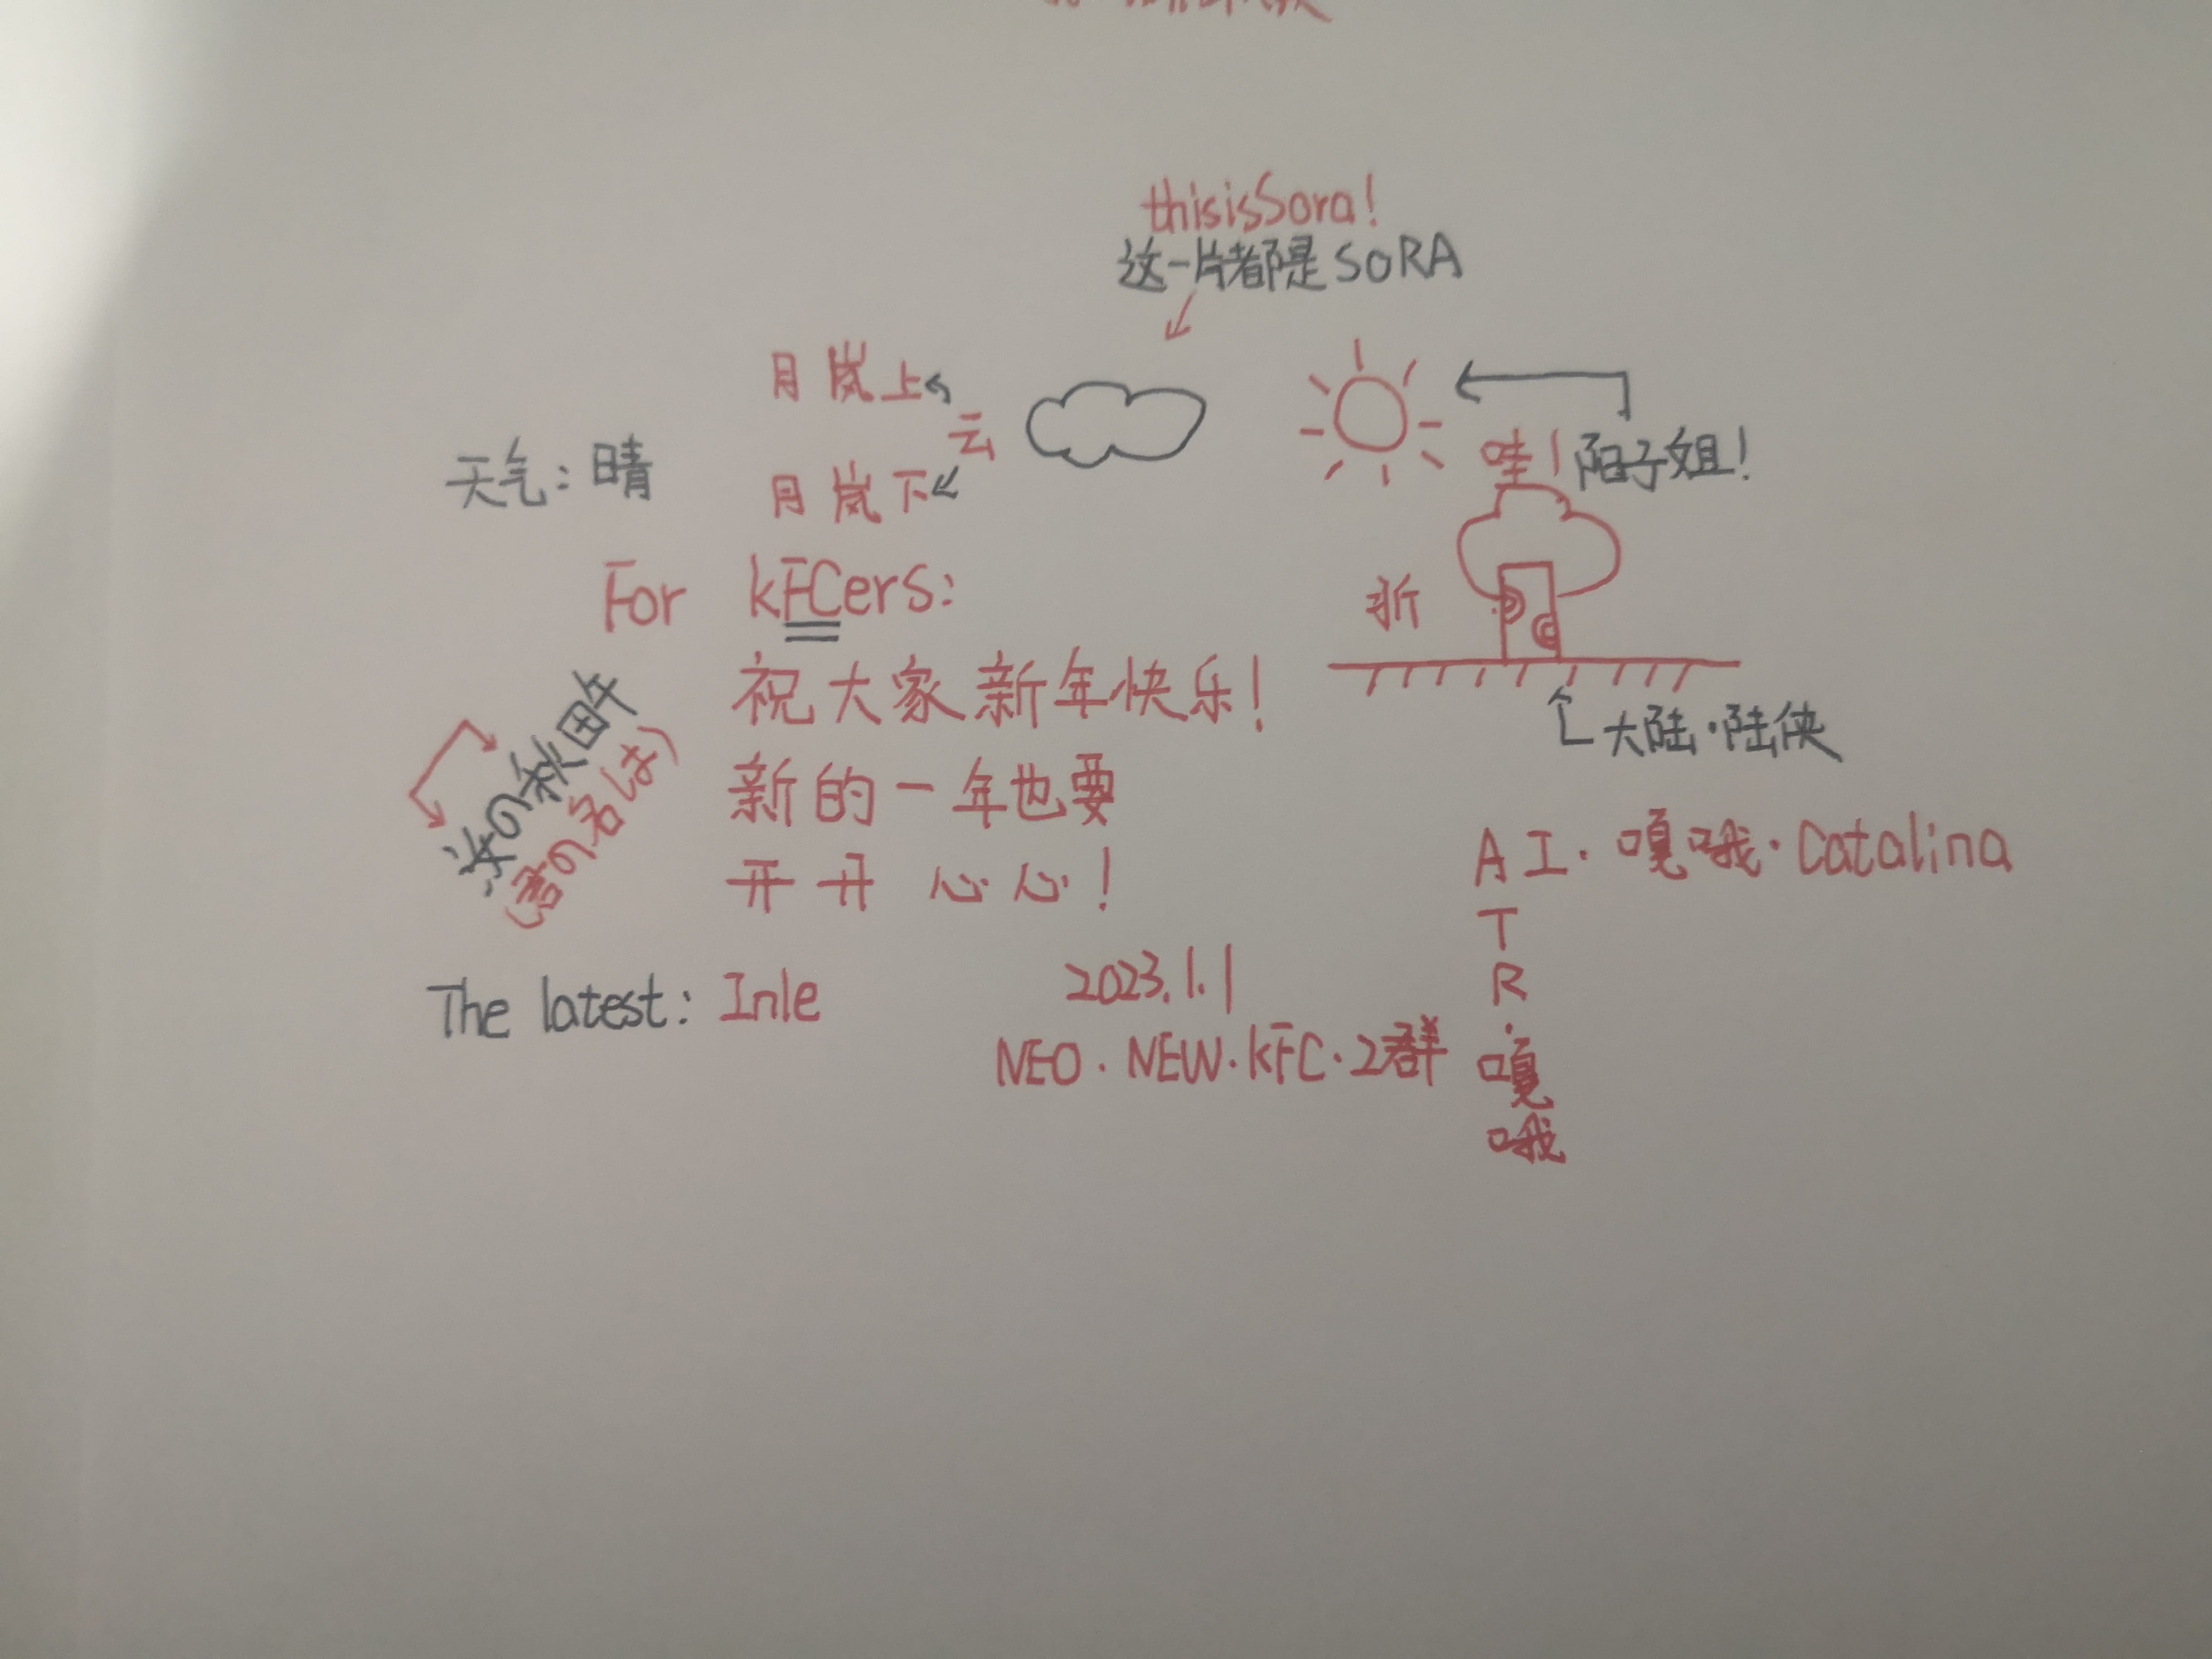 thisisSora!
这一片都是SORA
月岚上
云
月岚下
天气:晴
哇!阳子姐!
For kFCers:
折
祝大家新年快乐!
大陆·陆侠
新的一年也要
开开心心!
の秋田午
(君の名は)
AI·嘎哦·Catalina
T
R
·
嘎
哦
The latest: Inle
2023.1.1
NEO·NEW·KFC·2群